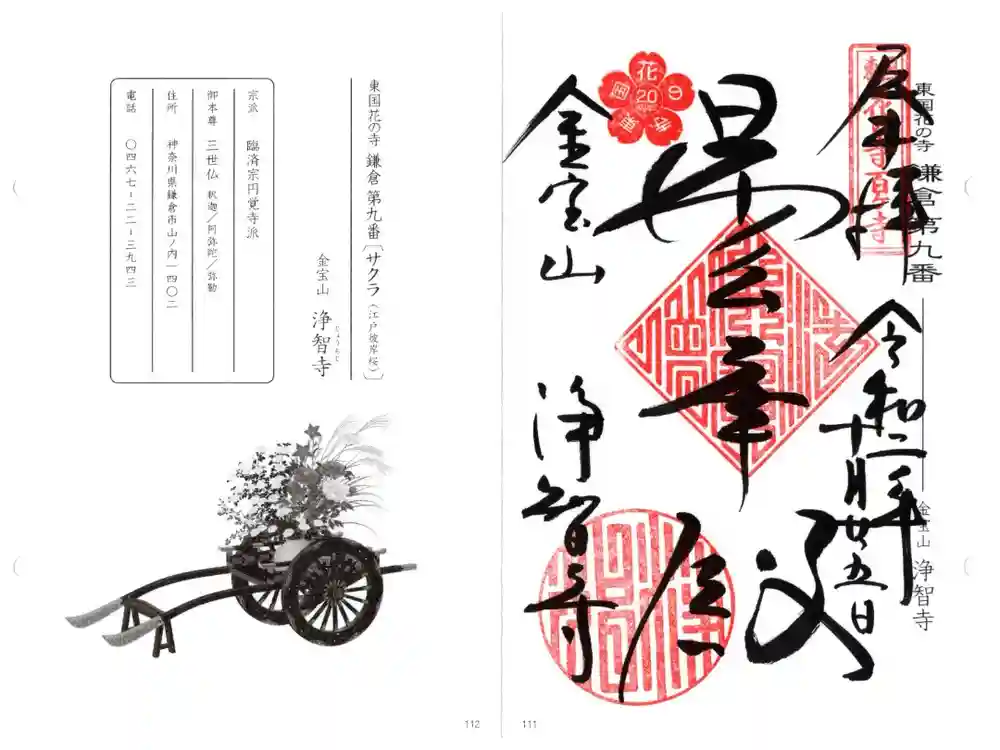 東国花の寺 鎌倉第九番 金宝山 浄智寺
奉拝
令和二年
十月廿五日
曇華殿
金宝山
浄智寺
20
111
東国花の寺 鎌倉 第九番〔サクラ（江戸彼岸桜）〕
金宝山 浄智寺
じょうちじ
宗派 臨済宗円覚寺派
御本尊 三世仏 釈迦／阿弥陀／弥勒
住所 神奈川県鎌倉市山ノ内一四〇二
電話 〇四六七-二二-三九四三
112